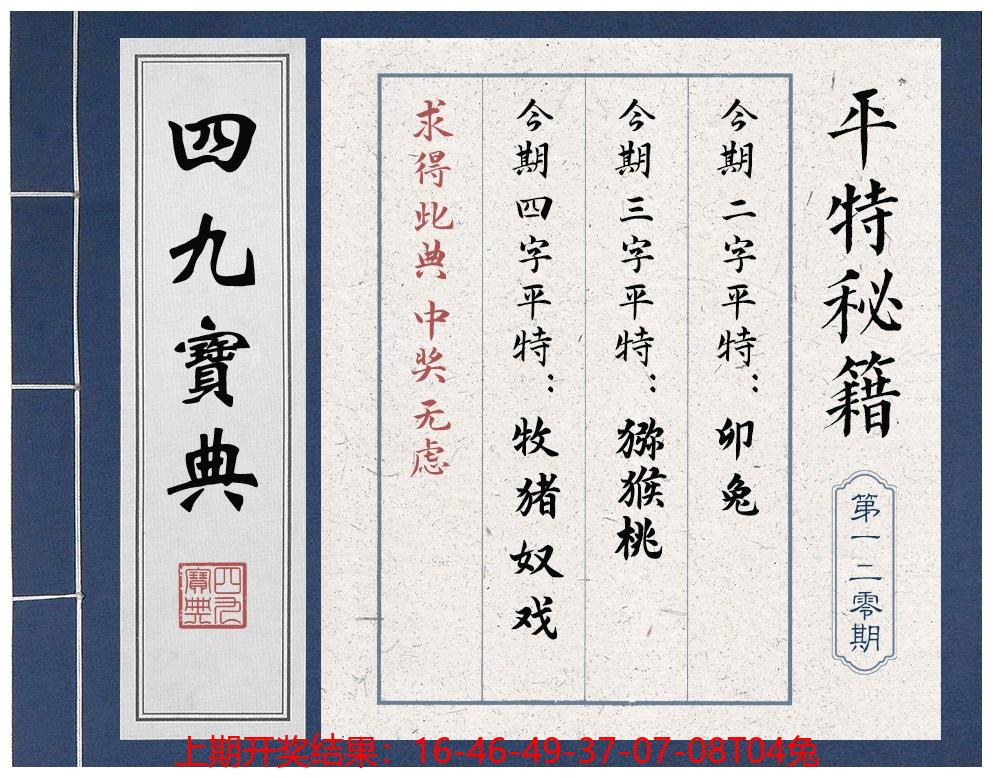 平特秘籍
第一二零期
今期二字平特：卯兔
今期三字平特：猕猴桃
今期四字平特：牧猪奴戏
求得此典 中奖无虑
四九寶典
四九寶典
上期开奖结果：16-46-49-37-07-08T04兔